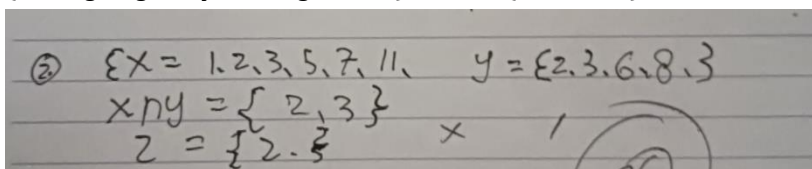 ② {X = 1.2、3、5、7、11、 y = {2.3.6、8、}
x∩y = { 2,3}
2 = {2.}
x /